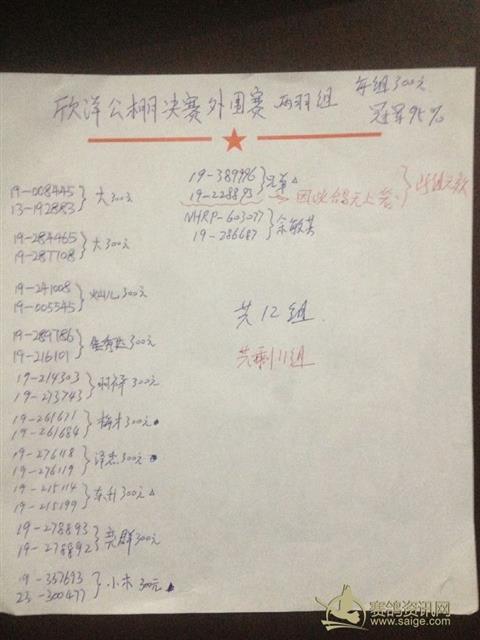 欣洋公棚决赛外围赛 两羽组 每组300元
冠军95%
19-008445
13-192883 } 大300元
19-284465
19-287108 } 大300元
19-241008
19-005545 } 灿儿300元
19-284786
19-216101 } 300元
19-214303
19-273743 } 羽祥300元
19-261671
19-261684 } 梅才300元
19-276118
19-276119 } 泽杰300元
19-215114
19-215199 } 东升300元
19-278893
19-278892 } 奕群300元
19-357693
23-300477 } 小木300元
19-389996
19-228893 } 兄弟 因此鸽无上笼 } 此组无效
NHRP-603077
19-286687 } 余敏其
共12组
共剩11组
赛鸽资讯网
www.saige.com